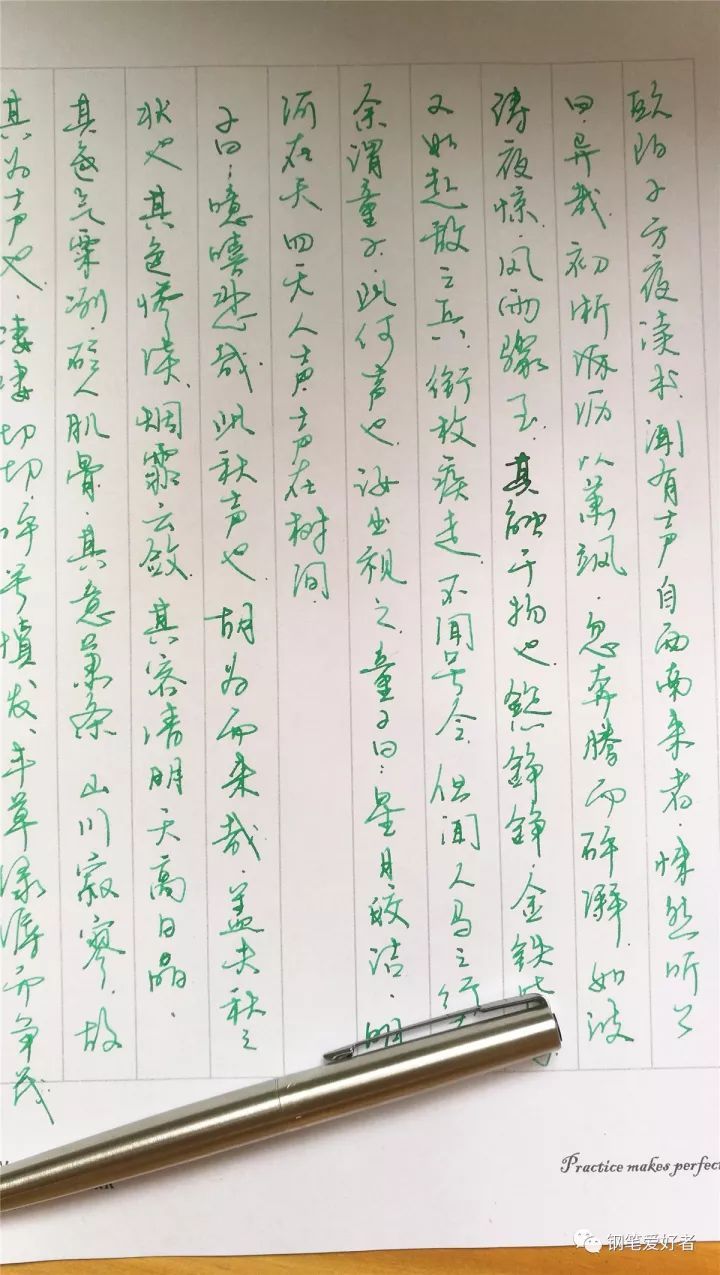 欧阳子方夜读书闻有声自西南来者.悚然听之
曰.异哉.初淅沥沥以萧飒.忽奔腾而砰湃.如波
涛夜惊.风雨骤至.其触于物也.鏦铮铮.金铁皆
又如赴敌之兵.衔枚疾走.不闻号令.但闻人马之行
余谓童子.此何声也.汝出视之.童子曰:星月皎洁.明
河在天四无人声.声在树间.
予曰:噫嘻悲哉.此秋声也.胡为而来哉.盖夫秋之
状也.其色惨淡.烟霏云敛.其容清明天高日晶.
其色气栗冽.砭人肌骨.其意萧条.山川寂寥.故
其为声也.凄凄切切.呼号愤发、丰草绿缛而争茂
Practice makes perfec
钢笔爱好者